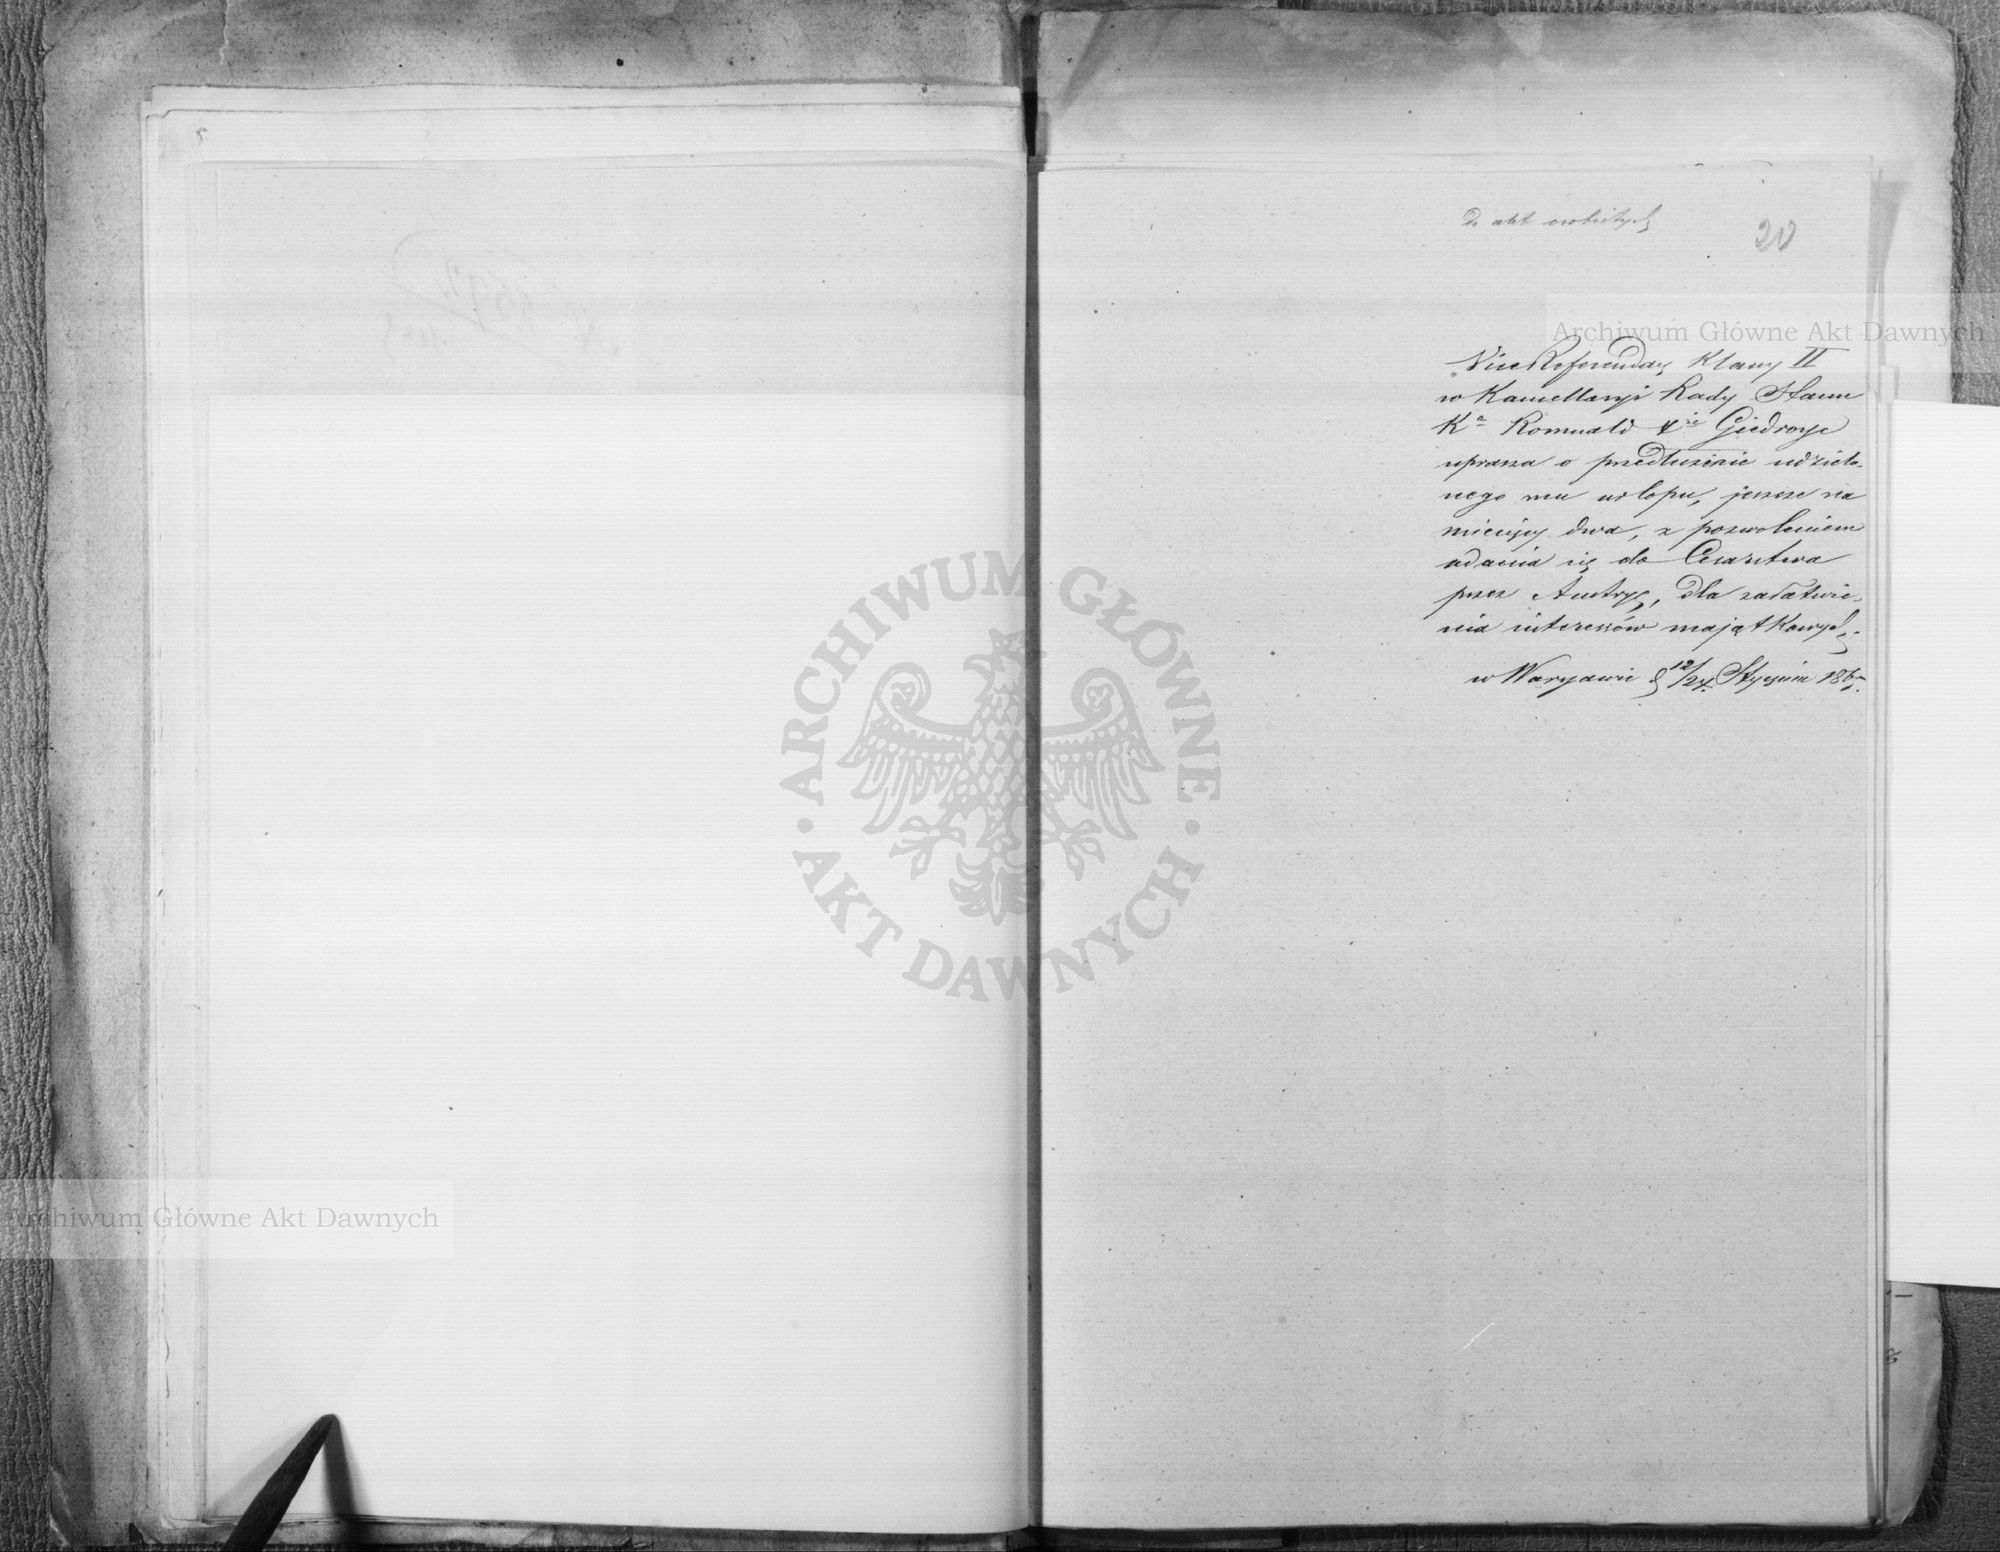 Do akt osobistych
20
Archiwum Główne Akt Dawnych
ViceReferendarz Klassy II
w Kancellaryi Rady Stanu
Romuald Xże Giedroyc
uprasza o przedłużenie udzielo-
nego mu urlopu, jeszcze na
miesięcy dwa, z pozwoleniem
udania się do Cesarstwa
przez Austryę, dla załatwie-
nia interessów majątkowych.
w Warszawie d 12/24 Stycznia
ARCHIWUM GŁÓWNE
AKT DAWNYCH
Archiwum Główne Akt Dawnych